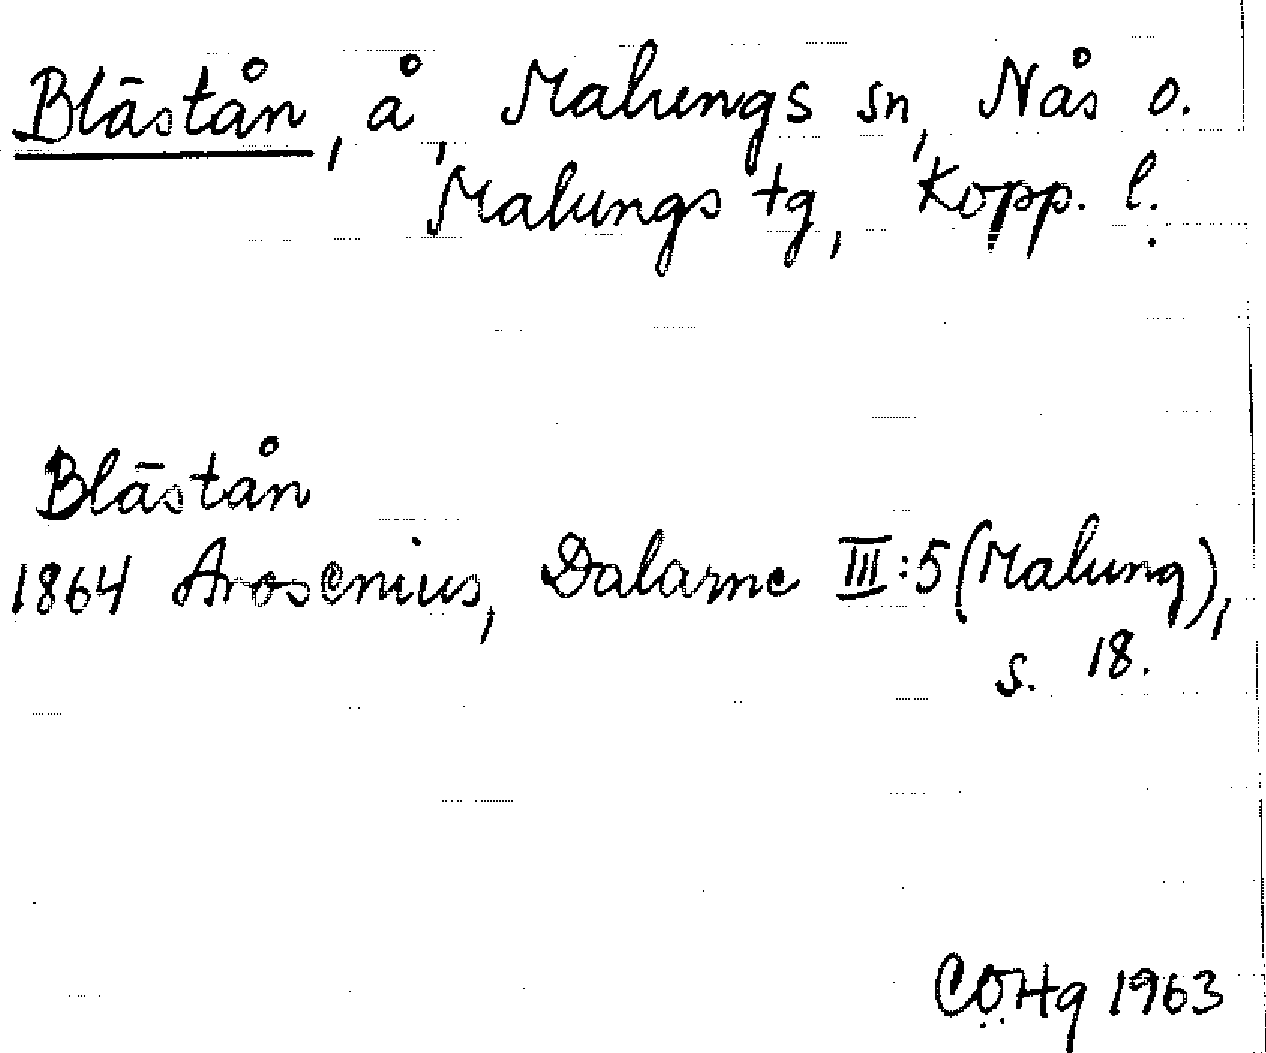 Blästån, å, Malungs sn, Nås o.
Malungs tg, Kopp. l.
Blästån
1864 Arosenius, Dalarne III:5 (Malung),
s. 18.
CÖHg 1963